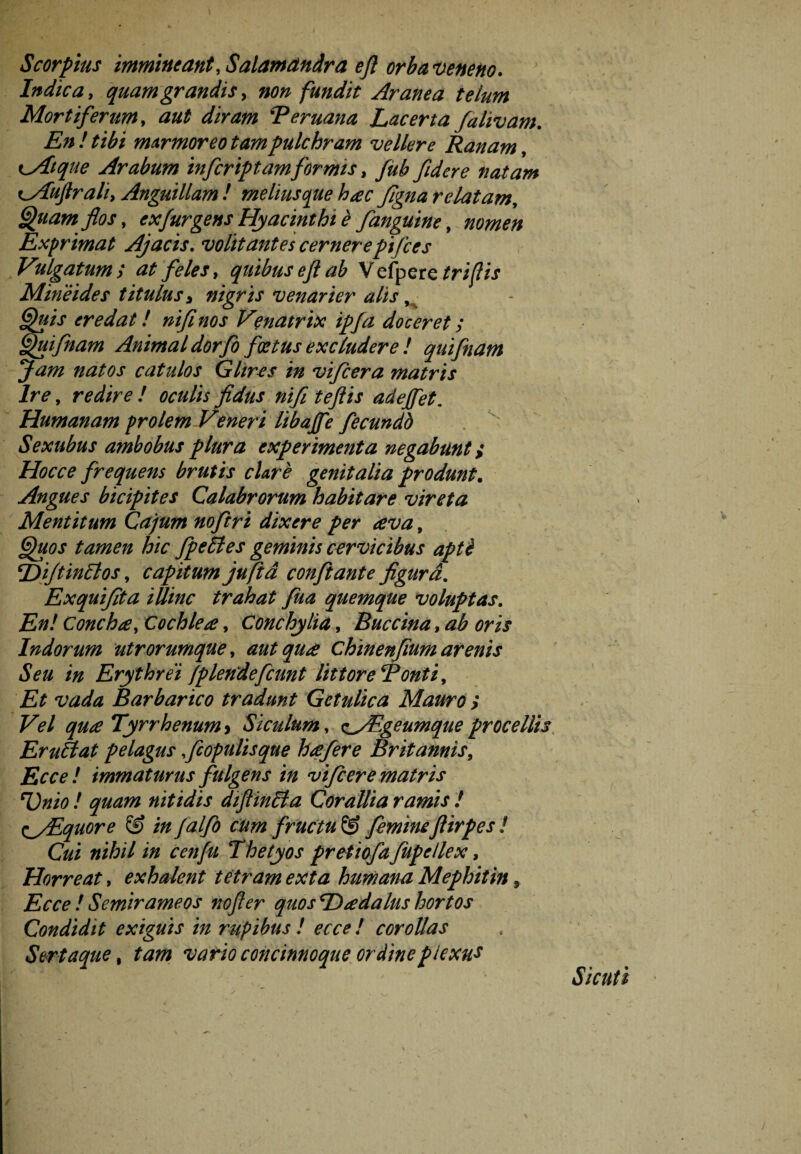 Scorpius immineant, Salamandra eſt orba veneno.
Indica, quam grandis, non fundit Aranea telum
Mortiferum, aut diram Peruana Lacerta ſalivam.
En! tibi marmoreo tam pulchram vellere Ranam,
Atque Arabum inſcriptam formis, ſub ſidere natam
Auſtrali, Anguillam! meliusque hæc ſigna relatam,
Quam flos, exſurgens Hyacinthi è ſanguine, nomen
Exprimat Ajacis. volitantes cernere piſces
Vulgatum; at feles, quibus eſt ab Veſpere triſtis
Minëides titulus, nigris venarier alis,
Quis credat! niſi nos Venatrix ipſa doceret;
Quiſnam Animal dorſo fœtus excludere! quiſnam
Jam natos catulos Glires in viſcera matris
Ire, redire! oculis fidus niſi teſtis adeſſet.
Humanam prolem Veneri libaſſe ſecundò
Sexubus ambobus plura experimenta negabunt;
Hocce frequens brutis clarè genitalia produnt.
Angues bicipites Calabrorum habitare vireta
Mentitum Cajum noſtri dixere per æva,
Quos tamen hic ſpectes geminis cervicibus aptè
Diſtinctos, capitum juſtâ conſtante figurâ.
Exquiſita illinc trahat ſua quemque voluptas.
En! Conchæ, Cochleæ, Conchylia, Buccina, ab oris
Indorum utrorumque, aut quæ Chinenſium arenis
Seu in Erythrëi ſplendeſcunt littore Ponti,
Et vada Barbarico tradunt Getulica Mauro;
Vel quæ Tyrrhenum, Siculum, Ægeumque procellis
Eructat pelagus, ſcopulisque hæſere Britannis,
Ecce! immaturus fulgens in viſcere matris
Unio! quam nitidis diſtincta Corallia ramis!
Æquore & in ſalſo cum fructu & ſemine ſtirpes!
Cui nihil in cenſu Thetyos pretioſa ſupellex,
Horreat, exhalent tetram exta humana Mephitin,
Ecce! Semirameos noſter quos Dædalus hortos
Condidit exiguis in rupibus! ecce! corollas
Sertaque, tam vario concinnoque ordine plexus
Sicuti